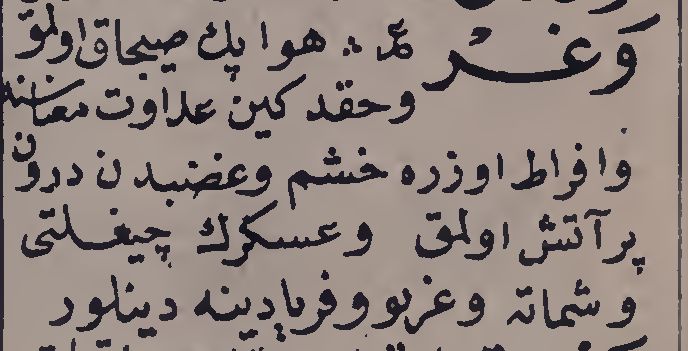 وغر ع م ∴ هوا پك صيجاق اولمق
وحقد كين عداوت معناسنه
وافراط اوزره خشم وغضبدن درون
پر آتش اولمق وعسكرك چيغلتى
وشماته وغريو وفريادينه دينلور